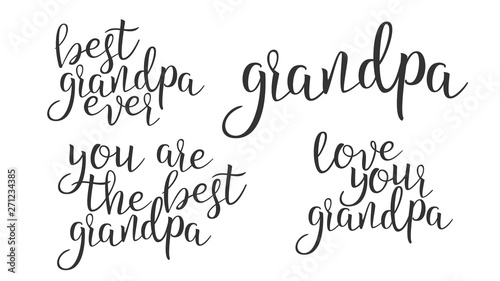 best
grandpa
ever
grandpa
you are
the best
grandpa
love
your
grandpa
Adobe Stock | #271234385